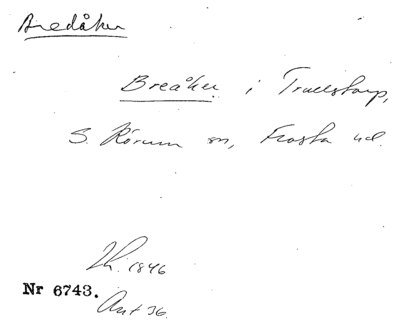 Bredåker
Breåker i Trulstorp,
S. Rörum sn, Frosta hd.
Lh. 1846
Nr 6743.
Ant 36.